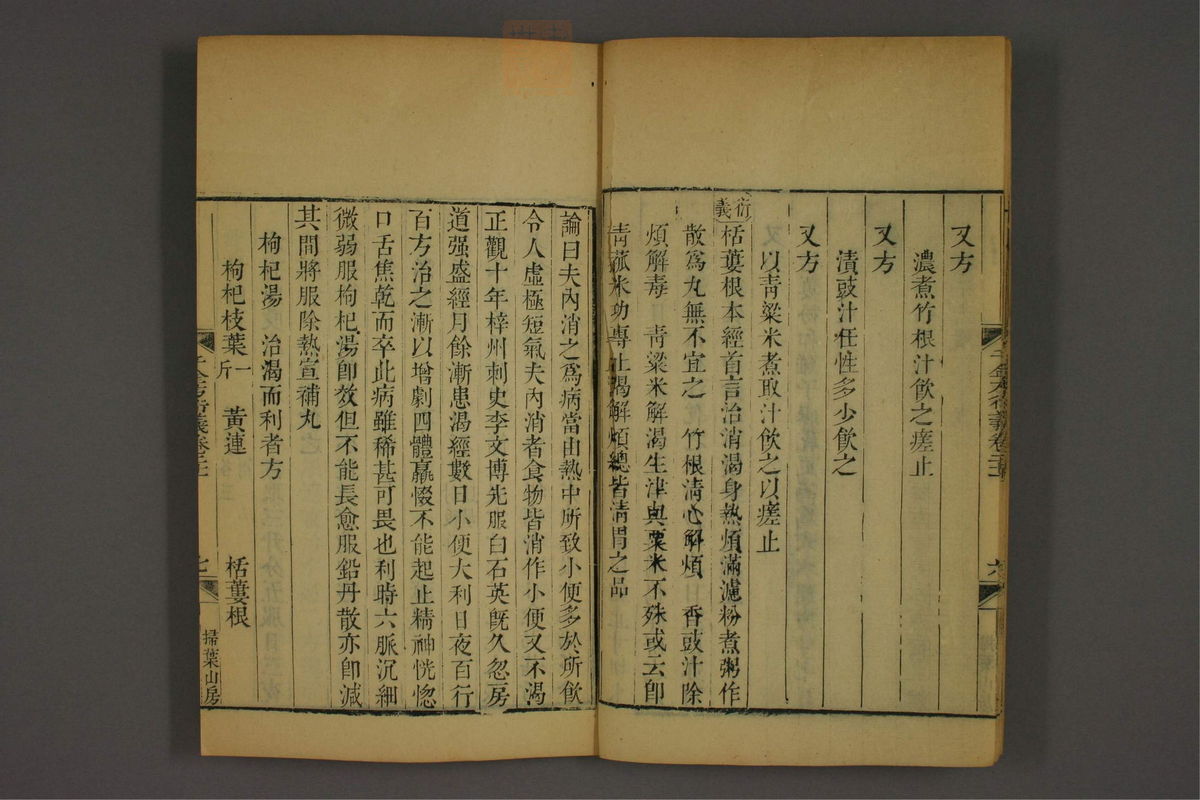 又方
濃煮竹根汁飲之瘥止
又方
漬豉汁任性多少飲之
又方
以靑粱米煮取汁飲之以瘥止
衍義
栝蔞根本經首言治消渴身熱煩滿濾粉煮粥作
散爲丸無不宜之 竹根淸心解煩 香豉汁除
煩解毒 靑粱米解渴生津與粟米不殊或云卽
靑菰米功專止渴解煩總皆淸胃之品
千金方衍義卷二十一
六
論曰夫內消之爲病當由熱中所致小便多於所飲
令人虛極短氣夫內消者食物皆消作小便又不渴
正觀十年梓州刺史李文博先服白石英旣久忽房
道强盛經月餘漸患渴經數日小便大利日夜百行
百方治之漸以增劇四體羸惙不能起止精神恍惚
口舌焦乾而卒此病雖稀甚可畏也利時六脈沉細
微弱服枸杞湯卽效但不能長愈服鉛丹散亦卽減
其間將服除熱宣補丸
枸杞湯 治渴而利者方
枸杞枝葉一斤 黃連 栝蔞根
千金方衍義卷二十一
七
掃葉山房